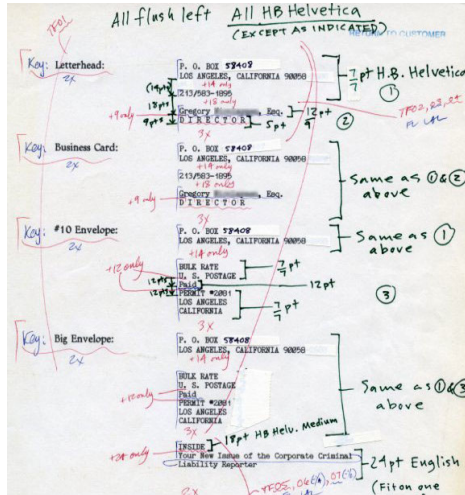 TF01
All flush left All HB Helvetica
(EXCEPT AS INDICATED)
RETURN TO CUSTOMER
Key: Letterhead:
2x
P. O. BOX 58408
LOS ANGELES, CALIFORNIA 90058
+14 only
213/583-1895
+18 only
Gregory Esq.
DIRECTOR
3x
(14pt)
18pt
9pt
+9 only
7/7 pt H.B. Helvetica
①
12pt
9
5pt
②
TF02, 03, 04
Key: Business Card:
2x
P. O. BOX 58408
LOS ANGELES, CALIFORNIA 90058
+14 only
213/583-1895
+18 only
Gregory Esq.
DIRECTOR
+9 only
3x
Same as ① & ②
above
Key: #10 Envelope:
2x
P. O. BOX 58408
LOS ANGELES, CALIFORNIA 90058
+14 only
Same as ①
above
BULK RATE
U. S. POSTAGE
Paid
PERMIT #2081
LOS ANGELES
CALIFORNIA
3x
+12 only
12pt
12pt
7/7 pt
12pt
7/7 pt
③
Key: Big Envelope:
2x
P. O. BOX 58408
LOS ANGELES, CALIFORNIA 90058
+14 only
BULK RATE
U. S. POSTAGE
Paid
PERMIT #2081
LOS ANGELES
CALIFORNIA
+12 only
3x
Same as ① & ③
above
INSIDE
18pt HB Helv. Medium
+24 only
Your New Issue of the Corporate Criminal
Liability Reporter
24pt English
(Fit on one
2x
TF05, 06